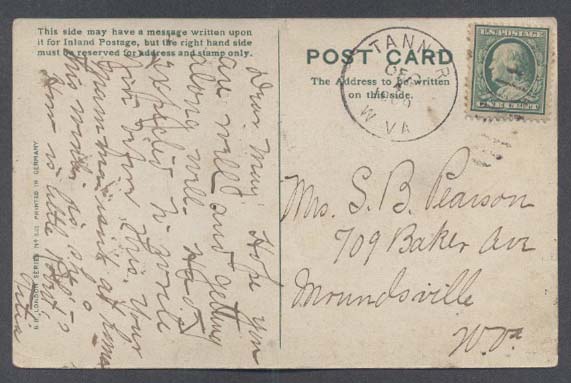 This side may have a message written upon
it for Inland Postage, but the right hand side
must be reserved for address and stamp only.
POST CARD
The Address to be written
on this side.
TANNER
W. VA
U.S. POSTAGE
Dear Mary Hope you
are well and getting
along well. Had
expected to write
you before this. Your
at home
this
is little
Mrs. S. B. Pearson
709 Baker Ave
Moundsville
W. Va
LONDON SERIES No PRINTED IN GERMANY